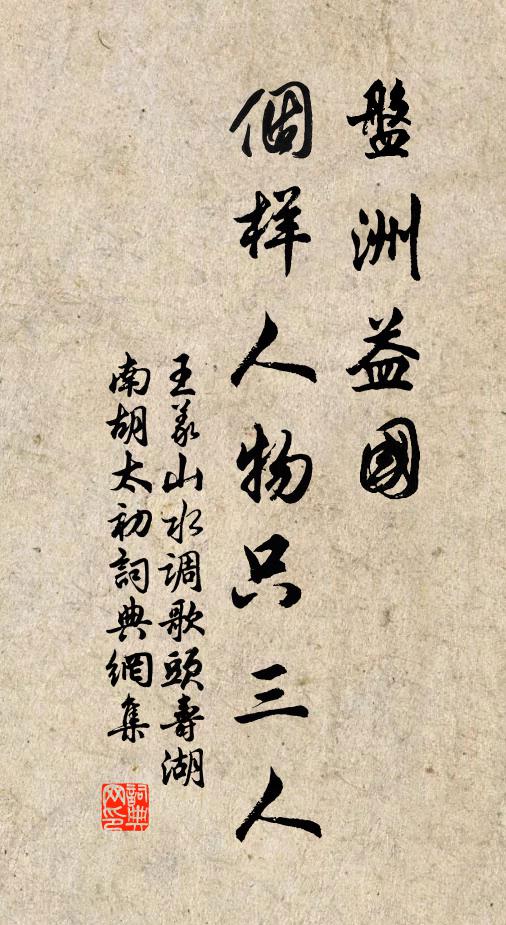 盤洲益國
個样人物只三人
王義山水调歌頭壽湖
南胡太初詞典網集
詞典
网印